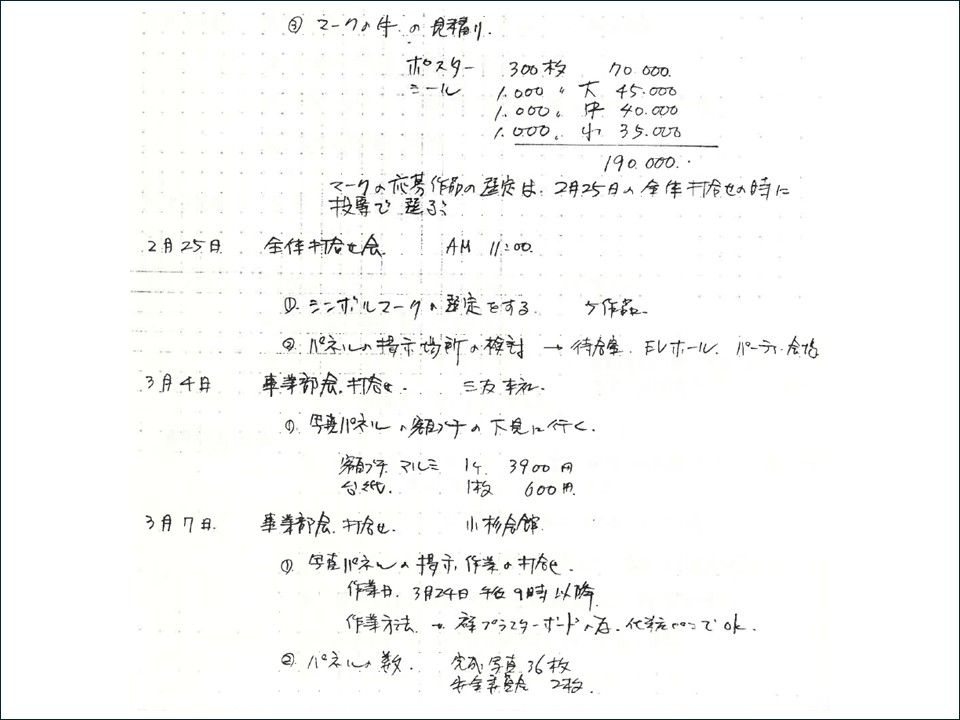 ③ マークの件の見積り.
ポスター 300枚 70.000.
シール 1.000〃 大 45.000
1.000〃 中 40.000
1.000〃 小 35.000
190.000.
マークの応募作品の選定は、2月25日の全体打合せの時に
投票で選ぶ
2月25日 全体打合せ会 AM 11:00.
① シンボルマークの選定をする. ケ作品.
② パネルの掲示場所の検討 → 待合室、EVホール、パーティ会場
3月4日 事業部会.打合せ. 三友本社.
① 写真パネルの額プチの下見に行く.
額プチ マルミ 1ケ 3900円
台紙. 1枚 600円.
3月7日. 事業部会.打合せ. 小杉会館
① 写真パネルの掲示.作業の打合せ.
作業日. 3月24日 午后9時以降
作業方法 → プラスターボードの為.化粧 でok.
② パネルの数. 完成写真36枚
安全委員会 2枚.